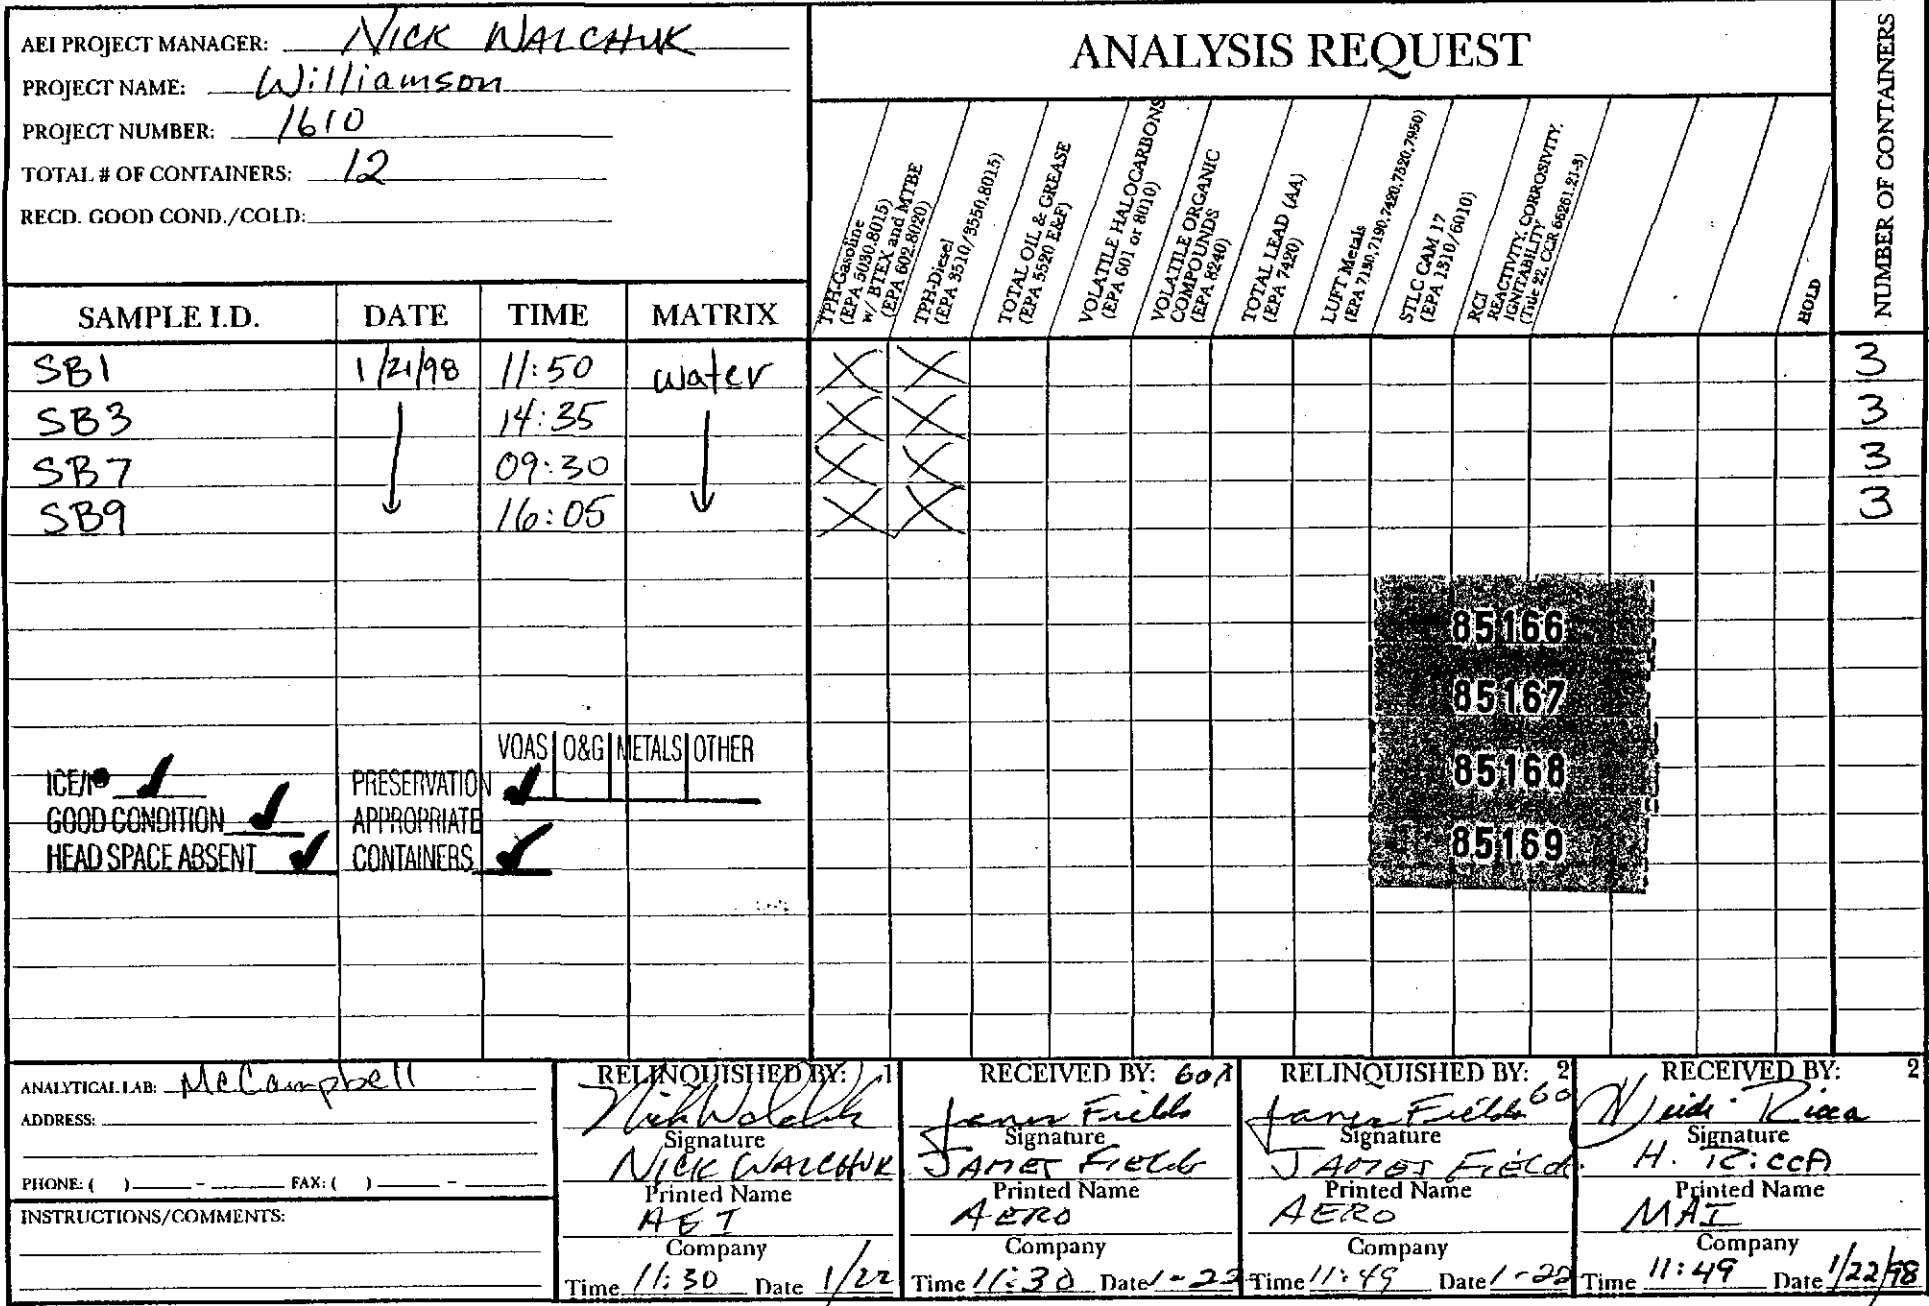 AEI PROJECT MANAGER: NICK WALCHUK
PROJECT NAME: Williamson
PROJECT NUMBER: 1610
TOTAL # OF CONTAINERS: 12
RECD. GOOD COND./COLD:
ANALYSIS REQUEST
TPH-Gasoline
(EPA 5030,8015)
w/ BTEX and MTBE
(EPA 602-8020)
TPH-Diesel
(EPA 3510/3550,8015)
TOTAL OIL & GREASE
(EPA 5520 E&F)
VOLATILE HALOCARBONS
(EPA 601 or 8010)
VOLATILE ORGANIC
COMPOUNDS
(EPA 8240)
TOTAL LEAD (AA)
(EPA 7420)
LUFT Metals
(EPA 7130,7190,7420,7520,7950)
STLC CAM 17
(EPA 1310/6010)
RCI
REACTIVITY, CORROSIVITY,
IGNITABILITY
(Title 22, CCR 66261.21-3)
HOLD
NUMBER OF CONTAINERS
SAMPLE I.D. DATE TIME MATRIX
SB1 1/21/98 11:50 water 3
SB3 14:35 3
SB7 09:30 3
SB9 16:05 3
85166
85167
85168
85169
VOAS O&G METALS OTHER
PRESERVATION
APPROPRIATE
CONTAINERS
GOOD CONDITION
HEAD SPACE ABSENT
ANALYTICAL LAB: McCampbell
ADDRESS:
PHONE: ( ) - FAX: ( ) -
INSTRUCTIONS/COMMENTS:
RELINQUISHED BY: 1
Nick Walchuk
Signature
NICK WALCHUK
Printed Name
AEI
Company
Time 11:30 Date 1/22
RECEIVED BY:
James Fields
Signature
JAMES FIELDS
Printed Name
AERO
Company
Time 11:30 Date 1-22
RELINQUISHED BY: 2
James Fields
Signature
JAMES FIELDS
Printed Name
AERO
Company
Time 11:49 Date 1-22
RECEIVED BY: 2
Heidi Ricca
Signature
H. RiccA
Printed Name
MAI
Company
Time 11:49 Date 1/22/98